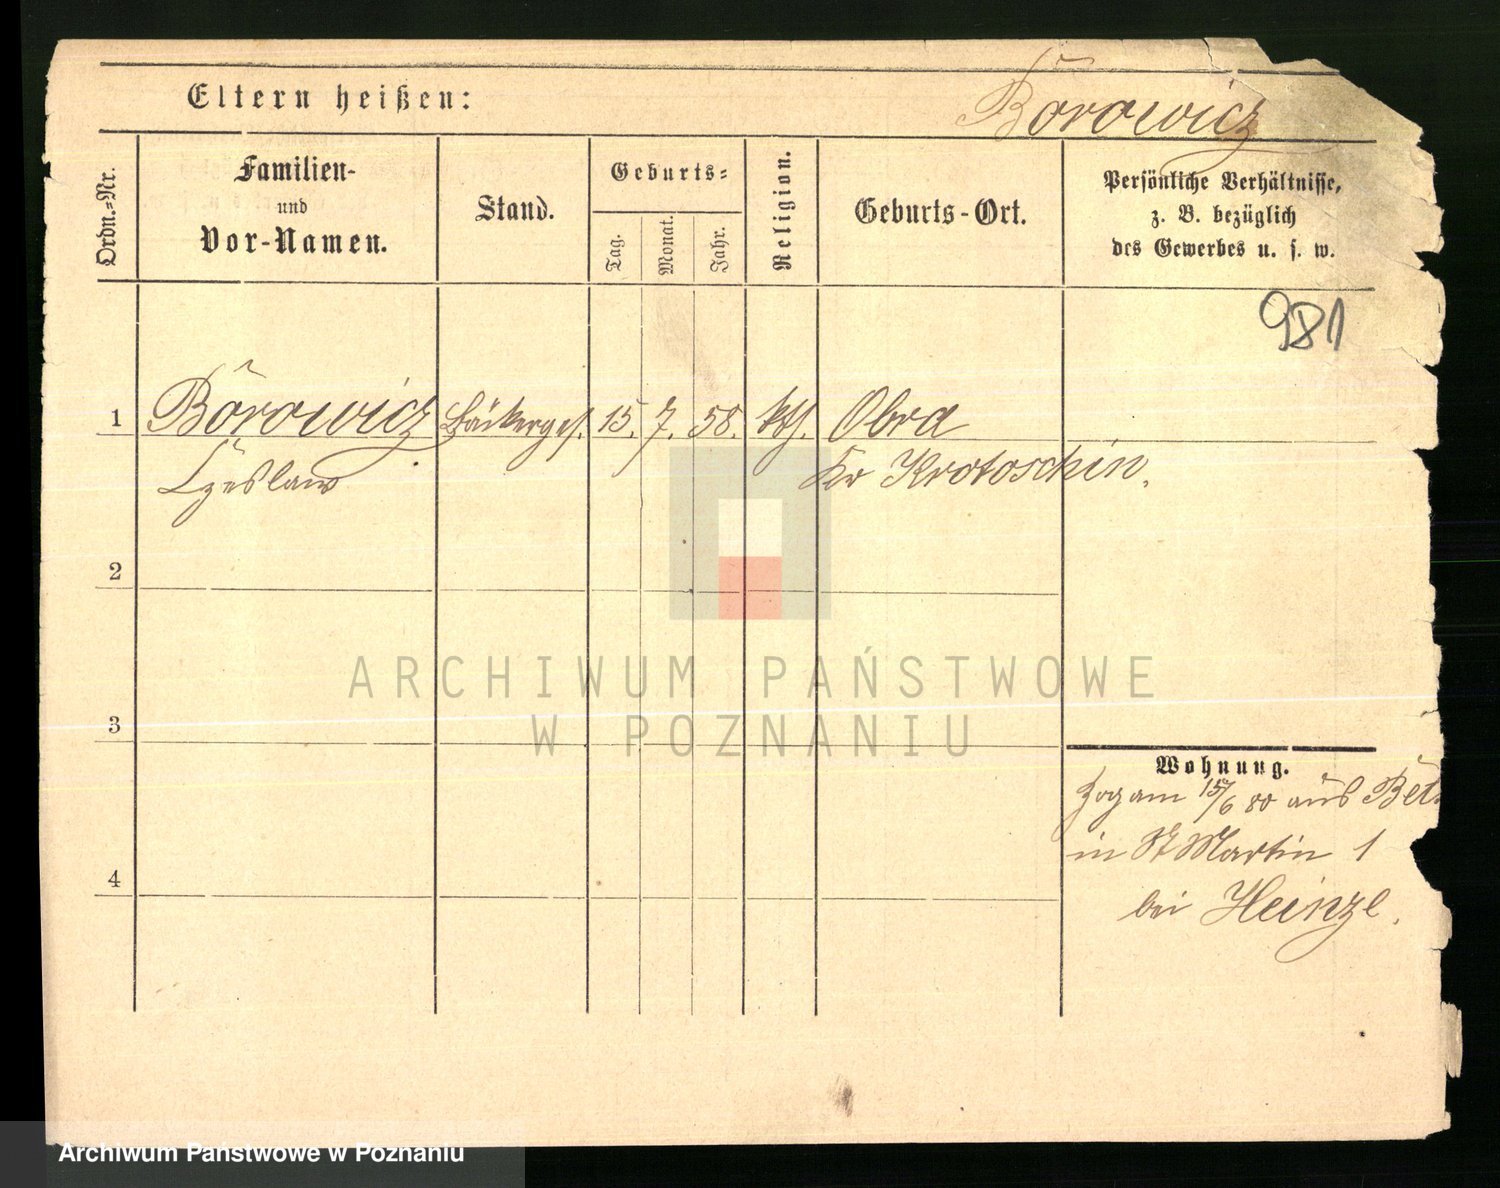 Eltern heißen:
Borowicz
Ordn.-Nr.
Familien-
und
Vor-Namen.
Stand.
Geburts-
Tag.
Monat.
Jahr.
Religion.
Geburts-Ort.
Persönliche Verhältnisse,
z. B. bezüglich
des Gewerbes u. s. w.
981
1 Borowicz Bäckerges. 15. 7. 58. kth. Obra
Czeslaw Kr Krotoschin.
2
ARCHIWUM PAŃSTWOWE
W POZNANIU
3
Wohnung.
Zog am 15/6 80 aus
in St Martin 1
4
bei Heinze.
Archiwum Państwowe w Poznaniu